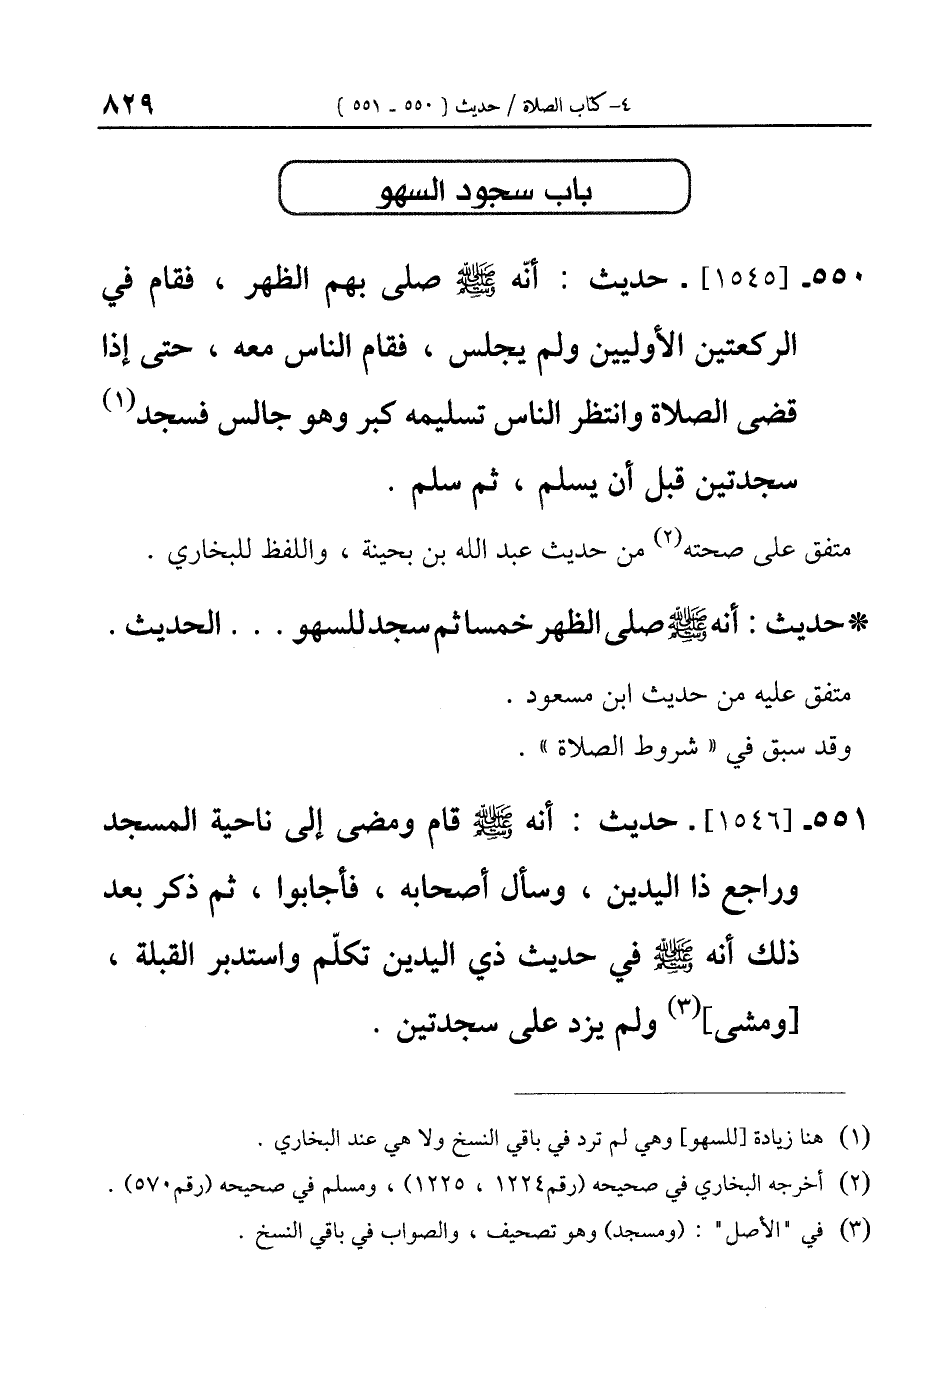 ٤- كتاب الصلاة / حديث ( ٥٥٠ - ٥٥١ ) ٨٢٩
باب سجود السهو
٥٥٠ـ [١٥٤٥] . حديث : أنّه ﷺ صلى بهم الظهر ، فقام في
الركعتين الأوليين ولم يجلس ، فقام الناس معه ، حتى إذا
قضى الصلاة وانتظر الناس تسليمه كبر وهو جالس فسجد(١)
سجدتين قبل أن يسلم ، ثم سلم .
متفق على صحته(٢) من حديث عبد الله بن بحينة ، واللفظ للبخاري .
* حديث : أنه ﷺ صلى الظهر خمسا ثم سجد للسهو . . . الحديث .
متفق عليه من حديث ابن مسعود .
وقد سبق في « شروط الصلاة » .
٥٥١ـ [١٥٤٦] . حديث : أنه ﷺ قام ومضى إلى ناحية المسجد
وراجع ذا اليدين ، وسأل أصحابه ، فأجابوا ، ثم ذكر بعد
ذلك أنه ﷺ في حديث ذي اليدين تكلّم واستدبر القبلة ،
[ومشى](٣) ولم يزد على سجدتين .
(١) هنا زيادة [للسهو] وهي لم ترد في باقي النسخ ولا هي عند البخاري .
(٢) أخرجه البخاري في صحيحه (رقم١٢٢٤ ، ١٢٢٥) ، ومسلم في صحيحه (رقم٥٧٠) .
(٣) في "الأصل" : (ومسجد) وهو تصحيف ، والصواب في باقي النسخ .